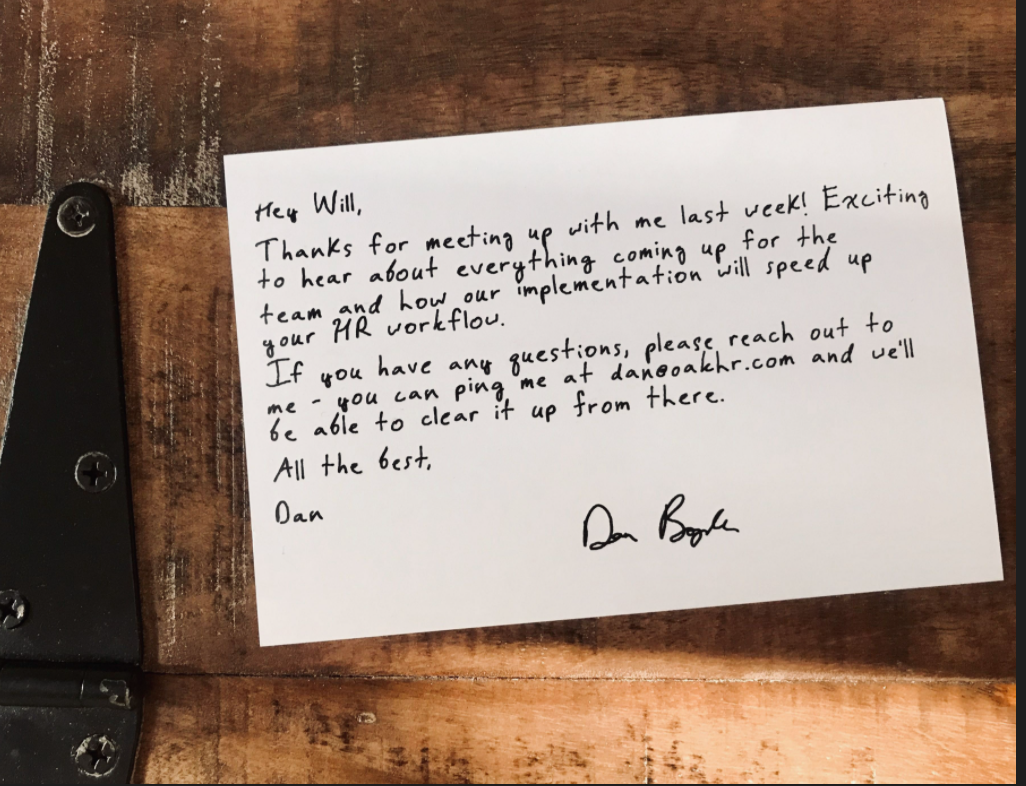 Hey Will,
Thanks for meeting up with me last week! Exciting
to hear about everything coming up for the
team and how our implementation will speed up
your HR workflow.
If you have any questions, please reach out to
me - you can ping me at dan@oakhr.com and we'll
be able to clear it up from there.
All the best,
Dan
Dan